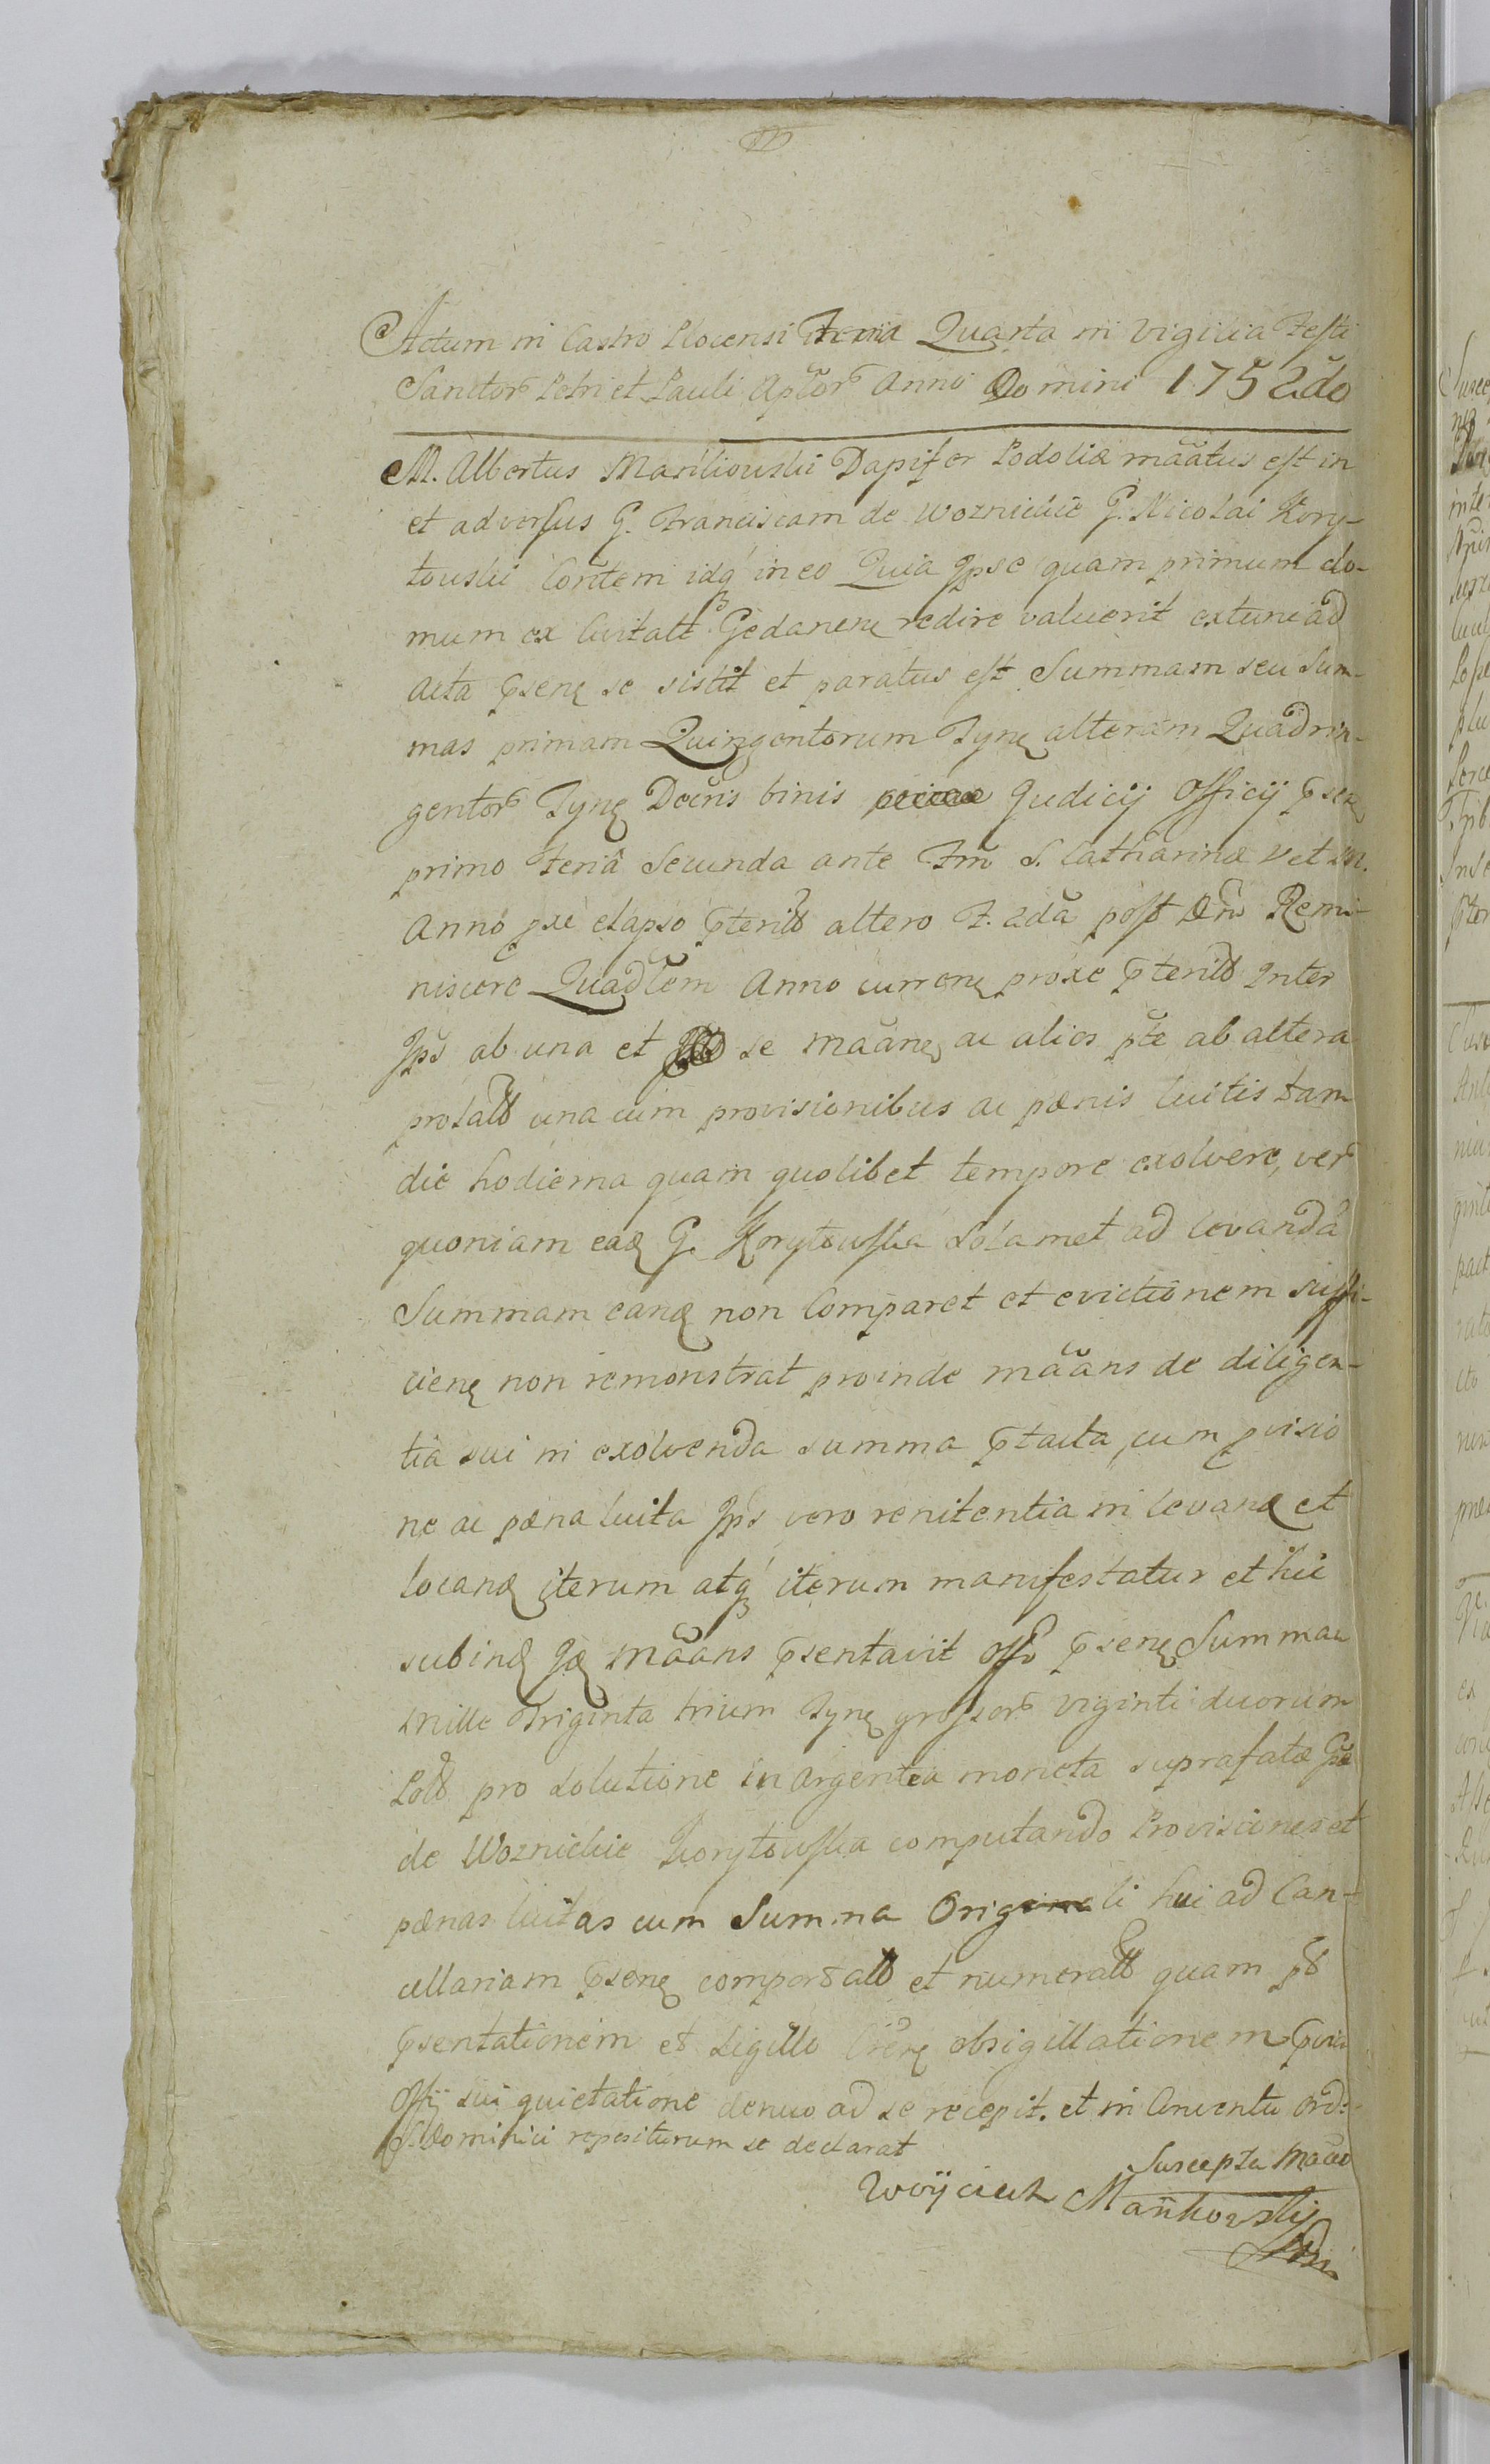 Actum in Castro Plocensi Feria Quarta in Vigilia Festi
Sanctor Petri et Pauli Aptõr Anno Domini 1752do
M. Albertus Mańkowski Dapifer Podoliæ mããtus est in
et adversus G. Franciscam de Woznickie G. Nicolai Kory-
towski Conãtem idq in eo Quia Ipse quam primum do-
mum ex Civitate Gedanen redire valuerit extunc ad
Acta pñsen se sistit et paratus est Summam seu Sum-
mas primam Quingentorum Tyn alteram Quadrin-
gentor Tyn Docũis binis Judicij Officij pñsen
primo Feriâ Secunda ante Fm̃ S. Catharinæ V et M.
Anno pxe elapso pterito altero F. 2dã post Dñi Remi-
niscere Quadlẽm Anno curren proxe pterito Inter
Ips ab una et se mããn ac alios pte ab altera
prolatt una cum provisionibus ac pænis luitis tam
die hodierna quam quolibet tempore exolvere, ver
quoniam ead G. Korytowska Solamet ad levanda
Summam eand non Comparet et evictionem suffi-
cien non remonstrat proinde mããns de diligen-
tia sui in exolvenda summa ptacta cum pvisio
ne ac pæna luita Ips vero renitentia in levand et
locand iterum atq iterum manifestatur et hic
subind Id mããns psentavit Offo pñsen Summam
Mille Triginta trium Tyn grossor viginti duorum
Poll pro solutione in argentea moneta suprafatæ Gsæ
de Woznickie Korytowska computando Provisiones et
pænas luitas cum Summa Originali huc ad Can-
cellariam pñsen comportatt et numeratt quam pt
psentationem et Sigillo obsigillationem pvia
Offij sui quietatione denuo ad se recepit. et in Conventu Ord:
S. Dominici repositurum se declarat
Suscepta
Woyciech Mańkowskij